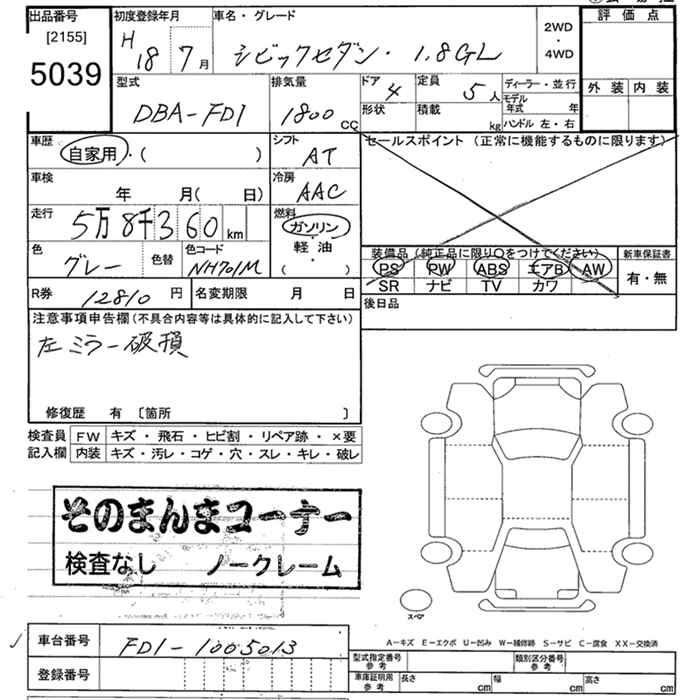 出品番号 初度登録年月 車名・グレード 評価点
[2155] H 18 7月 シビックセダン・1.8GL 2WD・4WD
5039 外装 内装
型式 排気量 ドア 4 定員 5人 ディーラー・並行
DBA-FD1 1800cc 形状 積載 kg モデル年式 年
ハンドル 左・右
車歴 自家用・( ) シフト AT セールスポイント (正常に機能するものに限ります)
車検 年 月( 日) 冷房 AAC
走行 5万8千360km 燃料 ガソリン・軽油・( )
色 グレー 色替 色コード NH701M
装備品(純正品に限り○をつけてください) 新車保証書
PS PW ABS エアB AW 有・無
SR ナビ TV カワ
R券 12810円 名変期限 月 日 後日品
注意事項申告欄(不具合内容等は具体的に記入して下さい)
左ミラー破損
修復歴 有〔箇所 〕
検査員 FW キズ・飛石・ヒビ割・リペア跡・×要
記入欄 内装 キズ・汚レ・コゲ・穴・スレ・キレ・破レ
そのまんまコーナー
検査なし ノークレーム
スペア
A-キズ E-エクボ U-凹み W-補修跡 S-サビ C-腐食 XX-交換済
車台番号 FD1-1005013
登録番号
型式指定番号 参考 類別区分番号 参考
車庫証明用 参考 長さ cm 幅 cm 高さ cm